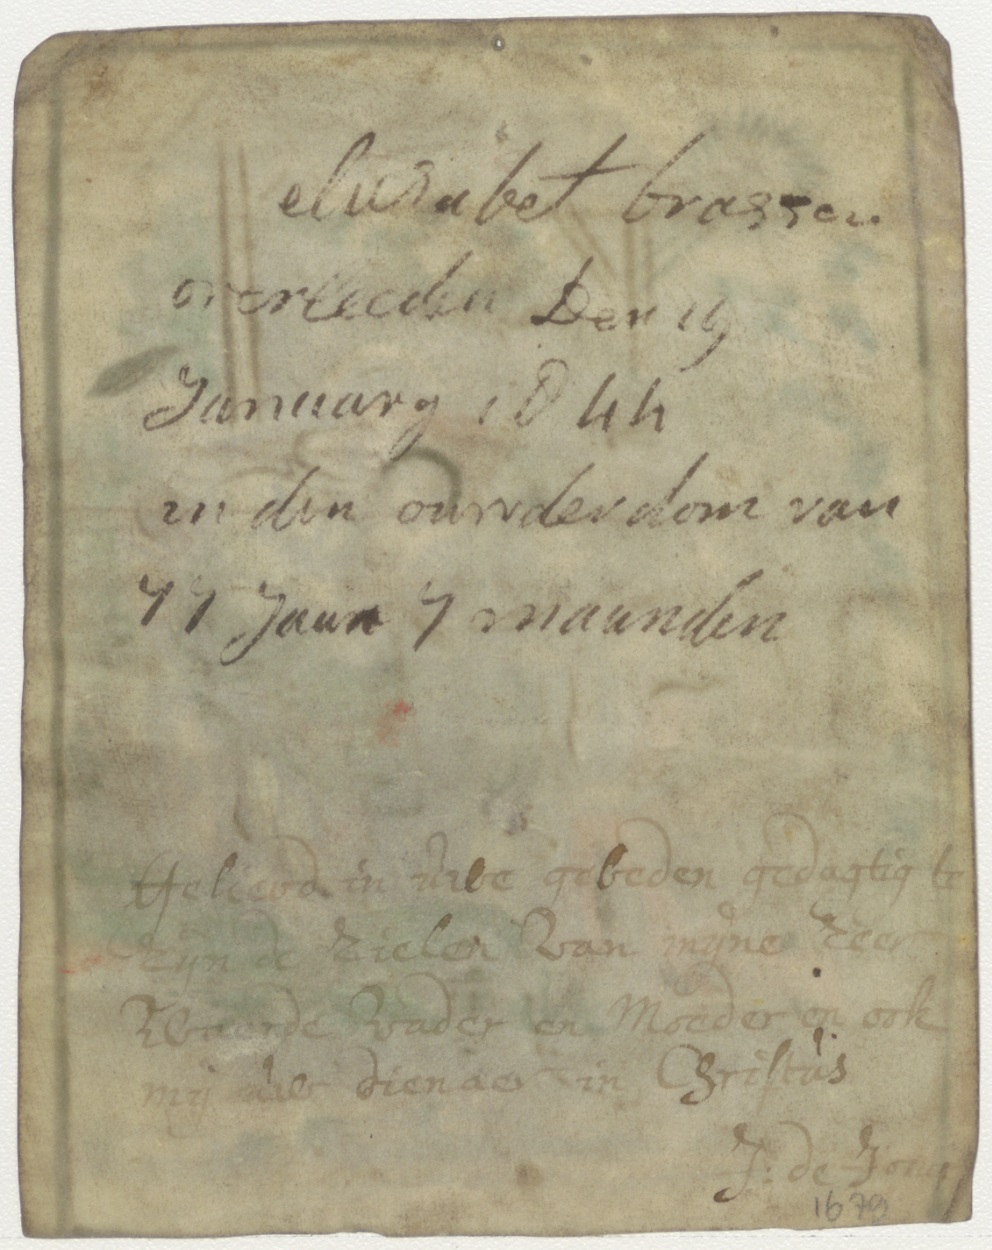 elisabet brassen
overleeden Den 19
January 1844
in den ouwderdom van
77 Jaar 7 maanden
Gelievd in uwe gebeden gedagtig te
zijn de zielen van mijne zeer
Waerde vader en Moeder en ook
mij uwe dienaer in Christus
J: de Jong
1679